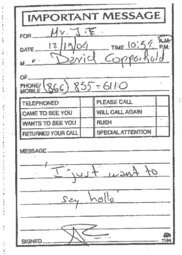 IMPORTANT MESSAGE
FOR Mr. J.E.
DATE 12/19/04 TIME 10:54 A.M. P.M.
M David Copperfield
OF
PHONE/ MOBILE (866) 855-6110
TELEPHONED PLEASE CALL
CAME TO SEE YOU WILL CALL AGAIN
WANTS TO SEE YOU RUSH
RETURNED YOUR CALL SPECIAL ATTENTION
MESSAGE
"I just want to
say hello"
SIGNED